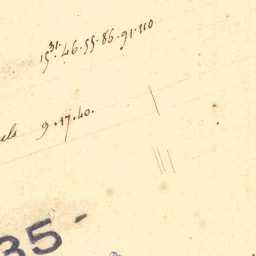 31.
15. 46. 55. 86. 91. 110
9. 17. 40.
35 -